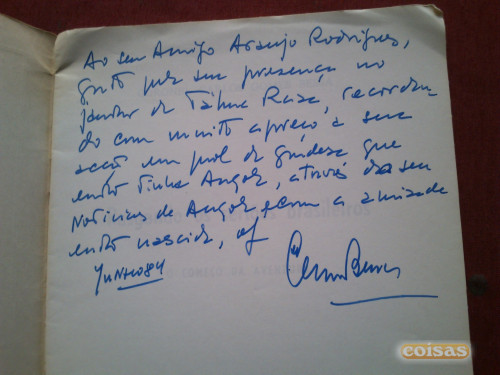 Ao seu Amigo Araujo Rodrigues,
grato pela sua presença no
jantar de Tábua Rasa, recordan-
do com muito apreço a sua
acção em prol da grandeza que
então tinha Angola, através do seu
Notícias de Angola, e com a amizade
então nascida, of
JUNHO 84
brasileiros
coisas